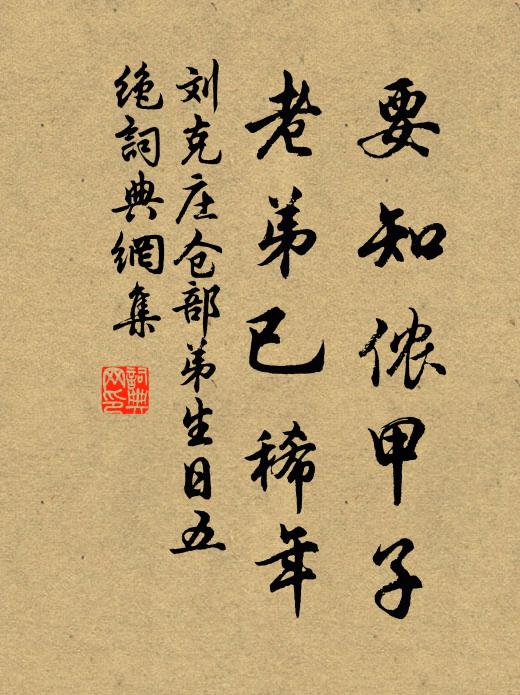 要知侬甲子
老弟已稀年
刘克庄仓部弟生日五
绝詞典網集
詞典网印